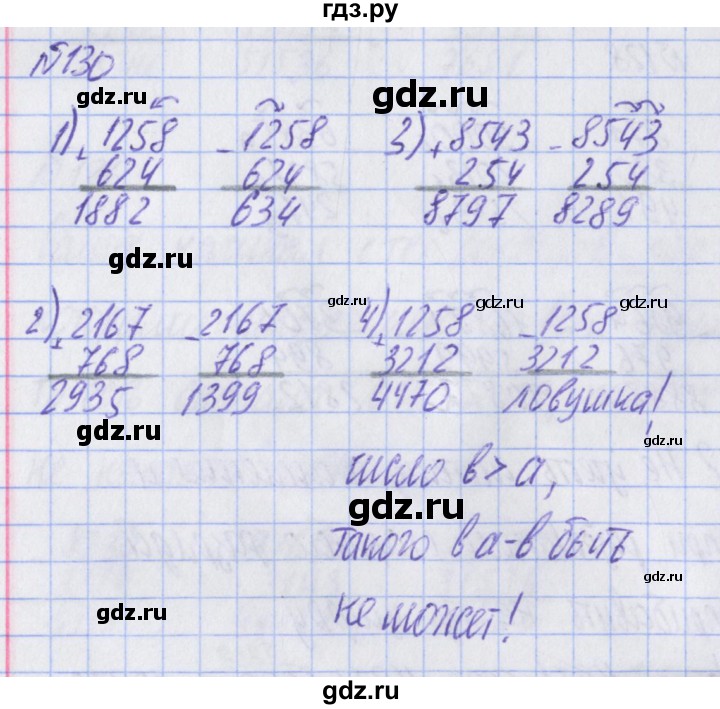 гдз.ру
№130
gdz.ru gdz.ru
1) + 1258 - 1258 3) + 8543 - 8543
624 624 254 254
1882 634 8797 8289
gdz.ru gdz.ru
gdz.ru gdz.ru gdz.ru
2) + 2167 - 2167 4) + 1258 - 1258
768 768 3212 3212
2935 1399 4470 ловушка!
gdz.ru gdz.ru
число в > а,
gdz.ru
такого в а-в быть
gdz.ru gdz.ru
не может!
gdz.ru